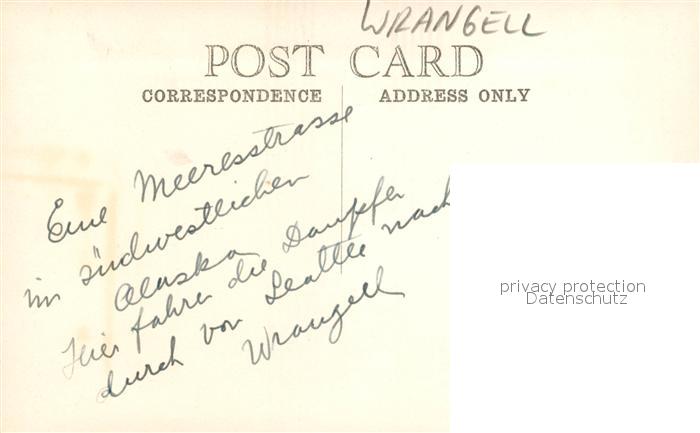 WRANGELL
POST CARD
CORRESPONDENCE ADDRESS ONLY
Eine Meeresstrasse
im südwestlichen
Alaska
Hier fahren die Dampfer
durch von Seattle nach
Wrangell
privacy protection
Datenschutz